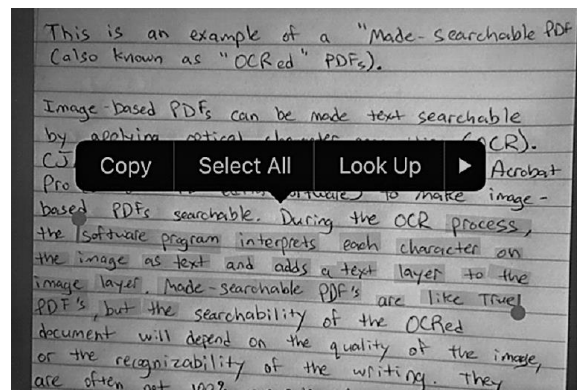 This is an example of a "Made-searchable PDF
(also known as "OCRed" PDFs).
Image-based PDFs can be made text searchable
by applying optical character (OCR).
Copy Select All Look Up ▶
Acrobat
Pro software) to make image-
based PDFs searchable. During the OCR process,
the software program interprets each character on
the image as text and adds a text layer to the
image layer. Made-searchable PDF's are like True
PDF's, but the searchability of the OCRed
document will depend on the quality of the image,
or the recognizability of the writing. They
are often not 100%